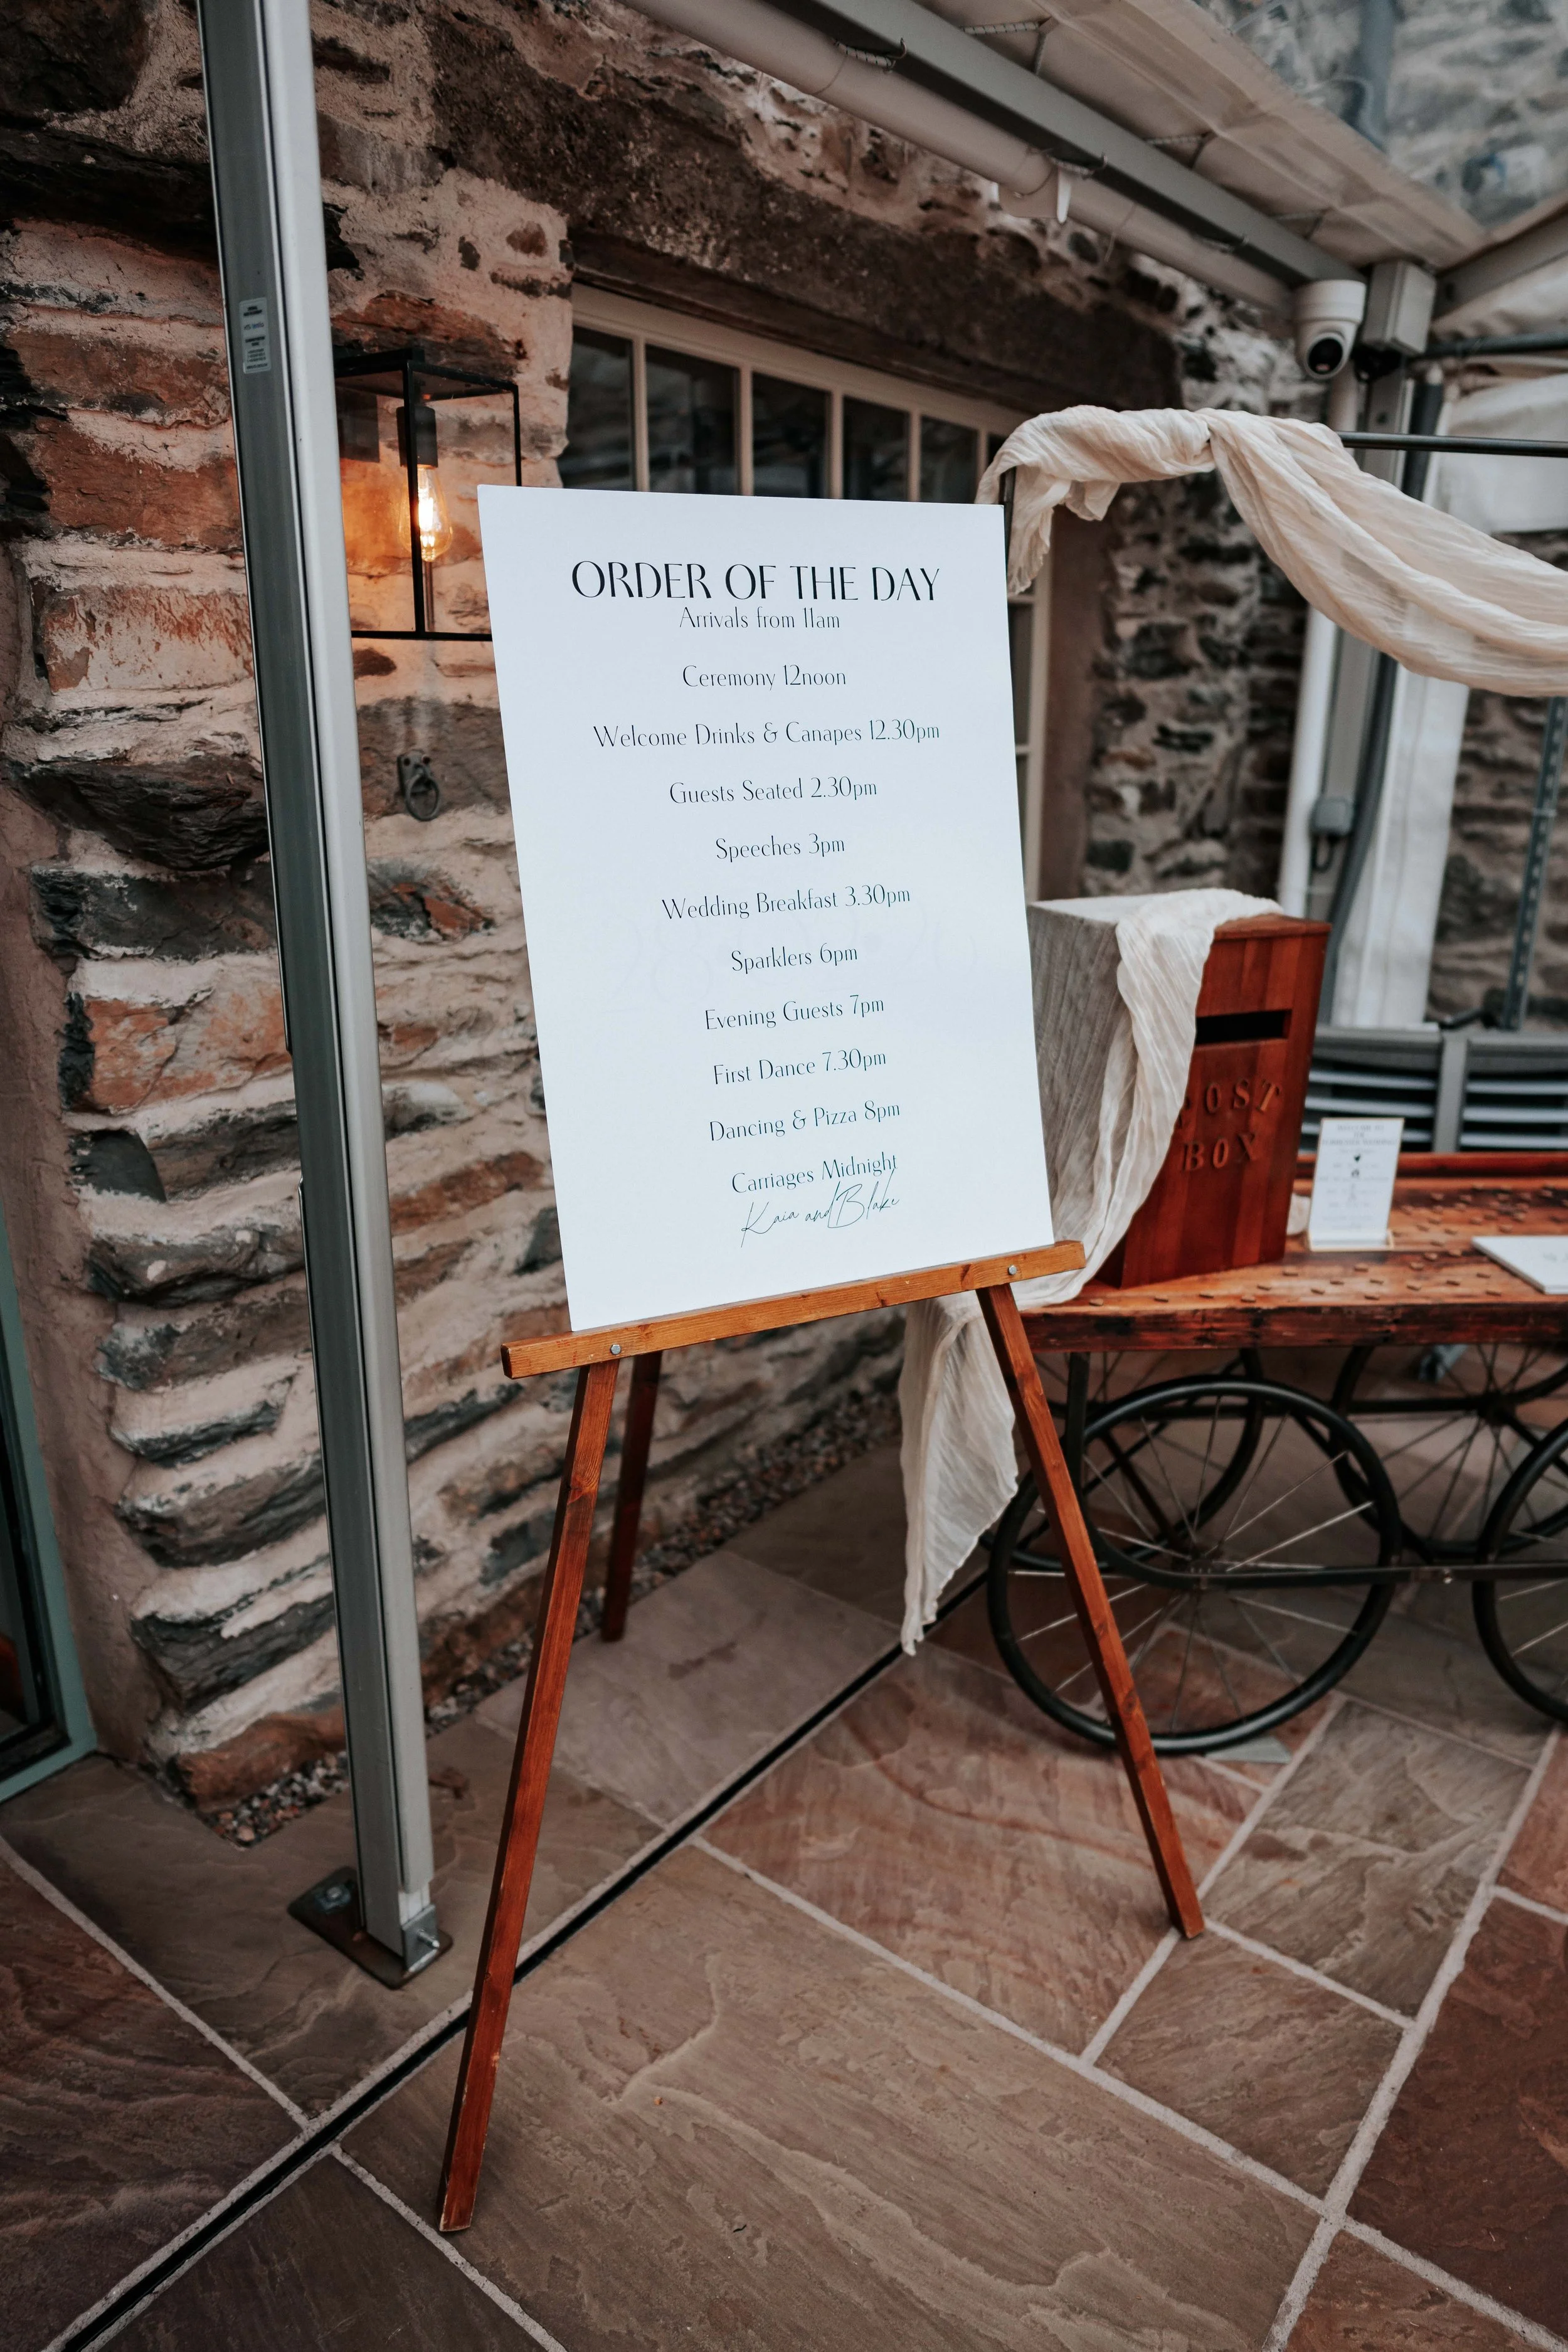 ORDER OF THE DAY
Arrivals from 11am
Ceremony 12noon
Welcome Drinks & Canapes 12.30pm
Guests Seated 2.30pm
Speeches 3pm
Wedding Breakfast 3.30pm
Sparklers 6pm
Evening Guests 7pm
First Dance 7.30pm
Dancing & Pizza 8pm
Carriages Midnight
Kaia and Blake
POST
BOX